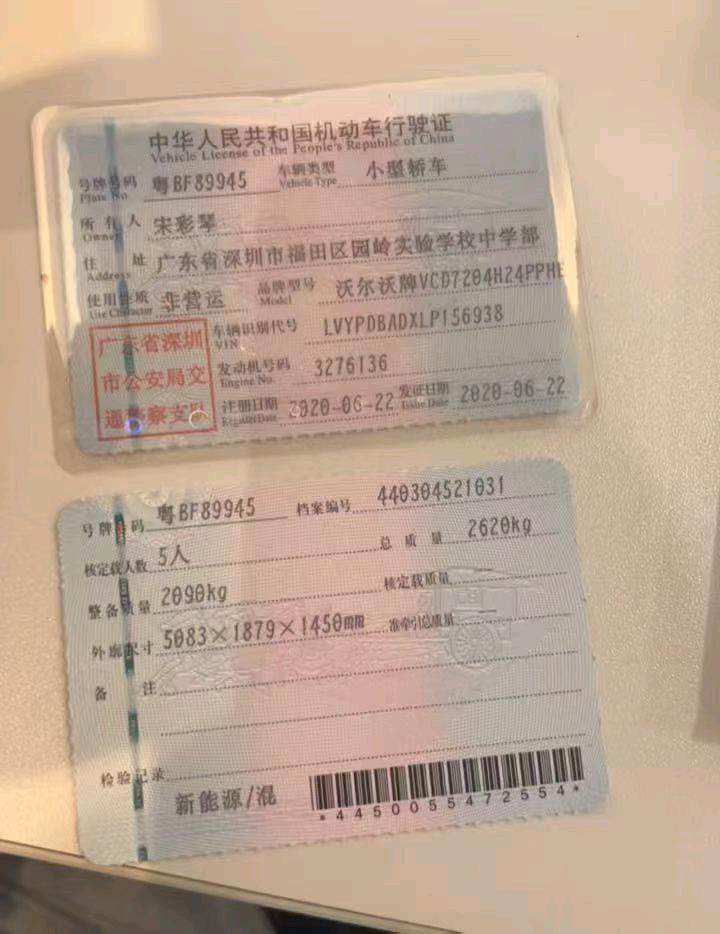 中华人民共和国机动车行驶证
Vehicle License of the People's Republic of China
号牌号码 粤BF89945 车辆类型 小型轿车
Plate No. Vehicle Type
所有人 宋彩琴
Owner
住址 广东省深圳市福田区园岭实验学校中学部
Address
使用性质 非营运 品牌型号 沃尔沃牌VCD7204H24PPHE
Use Character Model
车辆识别代号 LVYPDBADXLP156938
VIN
发动机号码 3276136
Engine No.
注册日期 2020-06-22 发证日期 2020-06-22
Register Date Issue Date
广东省深圳
市公安局交
通警察支队
号牌号码 粤BF89945 档案编号 440304521031
核定载人数 5人 总质量 2620kg
整备质量 2090kg 核定载质量 —
外廓尺寸 5083×1879×1450mm 准牵引总质量 —
备注
检验记录
新能源/混
*4450055472554*